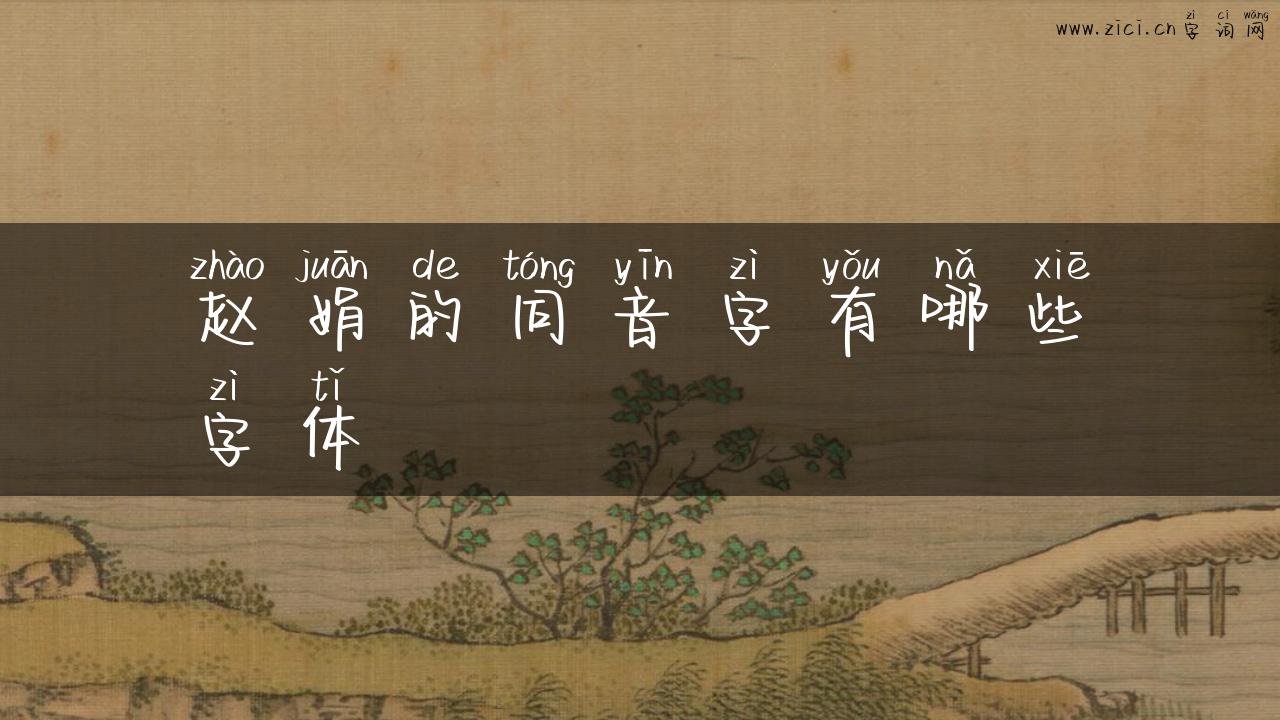 zì cí wǎng
www.zici.cn 字词网
zhào juān de tóng yīn zì yǒu nǎ xiē
赵娟的同音字有哪些
zì tǐ
字体